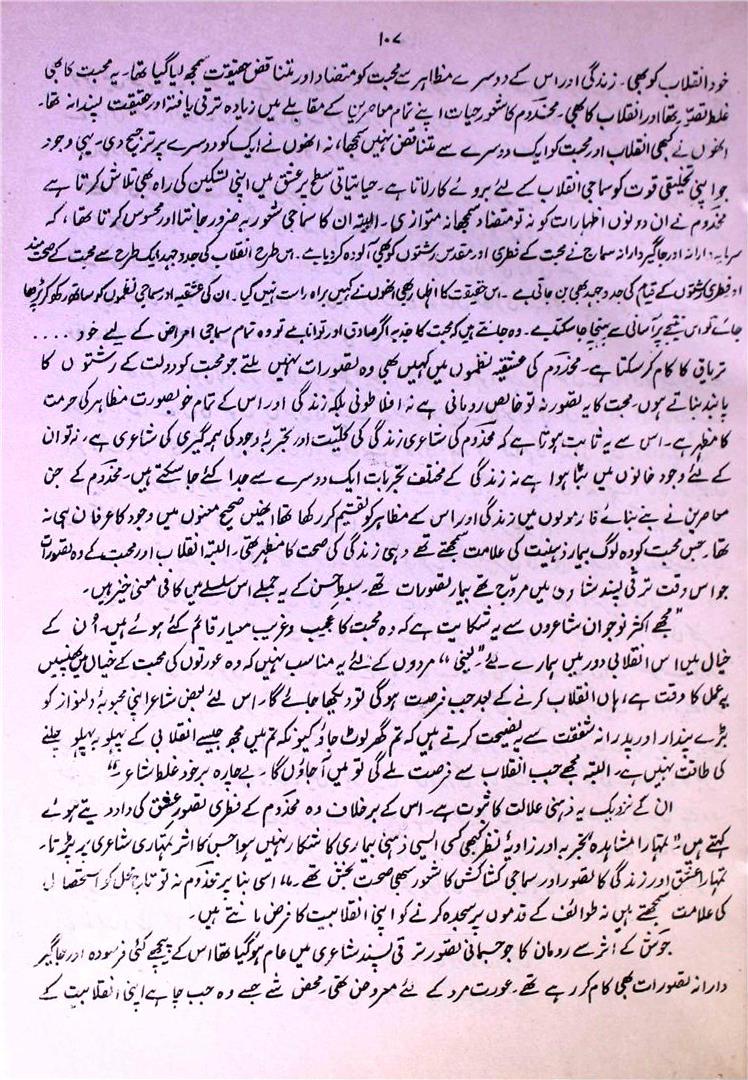 ۱۰۷
خود انقلاب کو بھی۔ زندگی اور اس کے دوسرے مظاہر سے محبت کو متضاد اور متناقض حقیقت سمجھ لیا گیا تھا۔ یہ محبت کا بھی
غلط تصور تھا اور انقلاب کا بھی۔ مخدوم کا شعور حیات اپنے تمام معاصرین کے مقابلے میں زیادہ ترقی یافتہ اور حقیقت پسندانہ تھا۔
انھوں نے کبھی انقلاب اور محبت کو ایک دوسرے سے متناقض نہیں سمجھا، نہ انھوں نے ایک کو دوسرے پر ترجیح دی۔ یہی وجود
جو اپنی تخلیقی قوت کو سماجی انقلاب کے لئے بروئے کار لاتا ہے۔ حیاتیاتی سطح پر عشق میں اپنی تسکین کی راہ بھی تلاش کرتا ہے
مخدوم نے ان دونوں اظہارات کو نہ تو متضاد سمجھا نہ متوازی۔ البتہ ان کا سماجی شعور یہ ضرور جانتا اور محسوس کرتا تھا، کہ
سرمایہ دارانہ اور جاگیردارانہ سماج نے محبت کے فطری اور مقدس رشتوں کو بھی آلودہ کر دیا ہے۔ اس طرح انقلاب کی جدوجہد ایک طرح سے محبت کے صحت مند
اور فطری رشتوں کے قیام کی جدوجہد بھی بن جاتی ہے۔ اس حقیقت کا اظہار بھی انھوں نے کہیں براہ راست نہیں کیا۔ ان کی عشقیہ اور سماجی نظموں کو ساتھ رکھ کر پڑھا
جائے تو اس نتیجے پر آسانی سے پہنچا جا سکتا ہے۔ وہ جانتے ہیں کہ محبت کا جذبہ اگر صادق اور توانا ہے تو وہ تمام سماجی امراض کے لیے خود ....
تریاق کا کام کر سکتا ہے۔ مخدوم کی عشقیہ نظموں میں کہیں بھی وہ تصورات نہیں ملتے جو محبت کو دولت کے رشتوں کا
پابند بناتے ہوں۔ محبت کا یہ تصور نہ تو خالص رومانی ہے نہ افلاطونی بلکہ زندگی اور اس کے تمام خوبصورت مظاہر کی حرمت
کا مظہر ہے۔ اس سے یہ ثابت ہوتا ہے کہ مخدوم کی شاعری زندگی کی کلیت اور تجربۂ وجود کی ہمہ گیری کی شاعری ہے، نہ تو ان
کے لئے وجود خانوں میں بٹا ہوا ہے نہ زندگی کے مختلف تجربات ایک دوسرے سے جدا کئے جا سکتے ہیں۔ مخدوم کے جن
معاصرین نے بنے بنائے فارمولوں میں زندگی اور اس کے مظاہر کو تقسیم کر رکھا تھا انھیں صحیح معنوں میں وجود کا عرفان ہی نہ
تھا۔ جس محبت کو وہ لوگ بیمار ذہنیت کی علامت سمجھتے تھے وہی زندگی کی صحت کا مظہر تھی۔ البتہ انقلاب اور محبت کے وہ تصورات
جو اس وقت ترقی پسند شاعری میں مروج تھے بیمار تصورات تھے۔ سبط حسن کے یہ جملے اس سلسلے میں کافی معنی خیز ہیں۔
"مجھے اکثر نوجوان شاعروں سے یہ شکایت ہے کہ وہ محبت کا عجیب و غریب معیار قائم کئے ہوئے ہیں۔ اُن کے
خیال میں اس انقلابی دور میں ہمارے لئے "یعنی" مردوں کے لئے یہ مناسب نہیں کہ وہ عورتوں کی محبت کے خیال میں پھنسیں
یہ عمل کا وقت ہے، ہاں انقلاب کرنے کے بعد جب فرصت ہو گی تو دیکھا جائے گا۔ اس لئے بعض شاعر اپنی محبوبۂ دلنواز کو
بڑے پندار اور پدرانہ شفقت سے نصیحت کرتے ہیں کہ تم گھر لوٹ جاؤ کیونکہ تم میں مجھ جیسے انقلابی کے پہلو بہ پہلو چلنے
کی طاقت نہیں ہے۔ البتہ مجھے جب انقلاب سے فرصت ملے گی تو میں آ جاؤں گا۔ بے چارہ بر خود غلط شاعر۔"
ان کے نزدیک یہ ذہنی علالت کا ثبوت ہے۔ اس کے برخلاف وہ مخدوم کے فطری تصور عشق کی داد دیتے ہوئے
کہتے ہیں "تمہارا مشاہدہ تجربہ اور زاویۂ نظر کبھی کسی ایسی ذہنی بیماری کا شکار نہیں ہوا جس کا اثر تمہاری شاعری پر پڑتا۔
تمہارا عشق اور زندگی کا تصور اور سماجی کشاکش کا شعور سبھی صحت بخش تھے۔" اسی بنا پر مخدوم نہ تو تاج محل کو استحصال
کی علامت سمجھتے ہیں نہ طوائف کے قدموں پر سجدہ کرنے کو اپنی انقلابیت کا فرض مانتے ہیں۔
جوش کے اثر سے رومان کا جو جسمانی تصور ترقی پسند شاعری میں عام ہو گیا تھا اس کے پیچھے کئی فرسودہ اور جاگیر
دارانہ تصورات بھی کام کر رہے تھے۔ عورت مرد کے لئے معروض تھی۔ محض شے جسے وہ جب چاہے اپنی انقلابیت کے